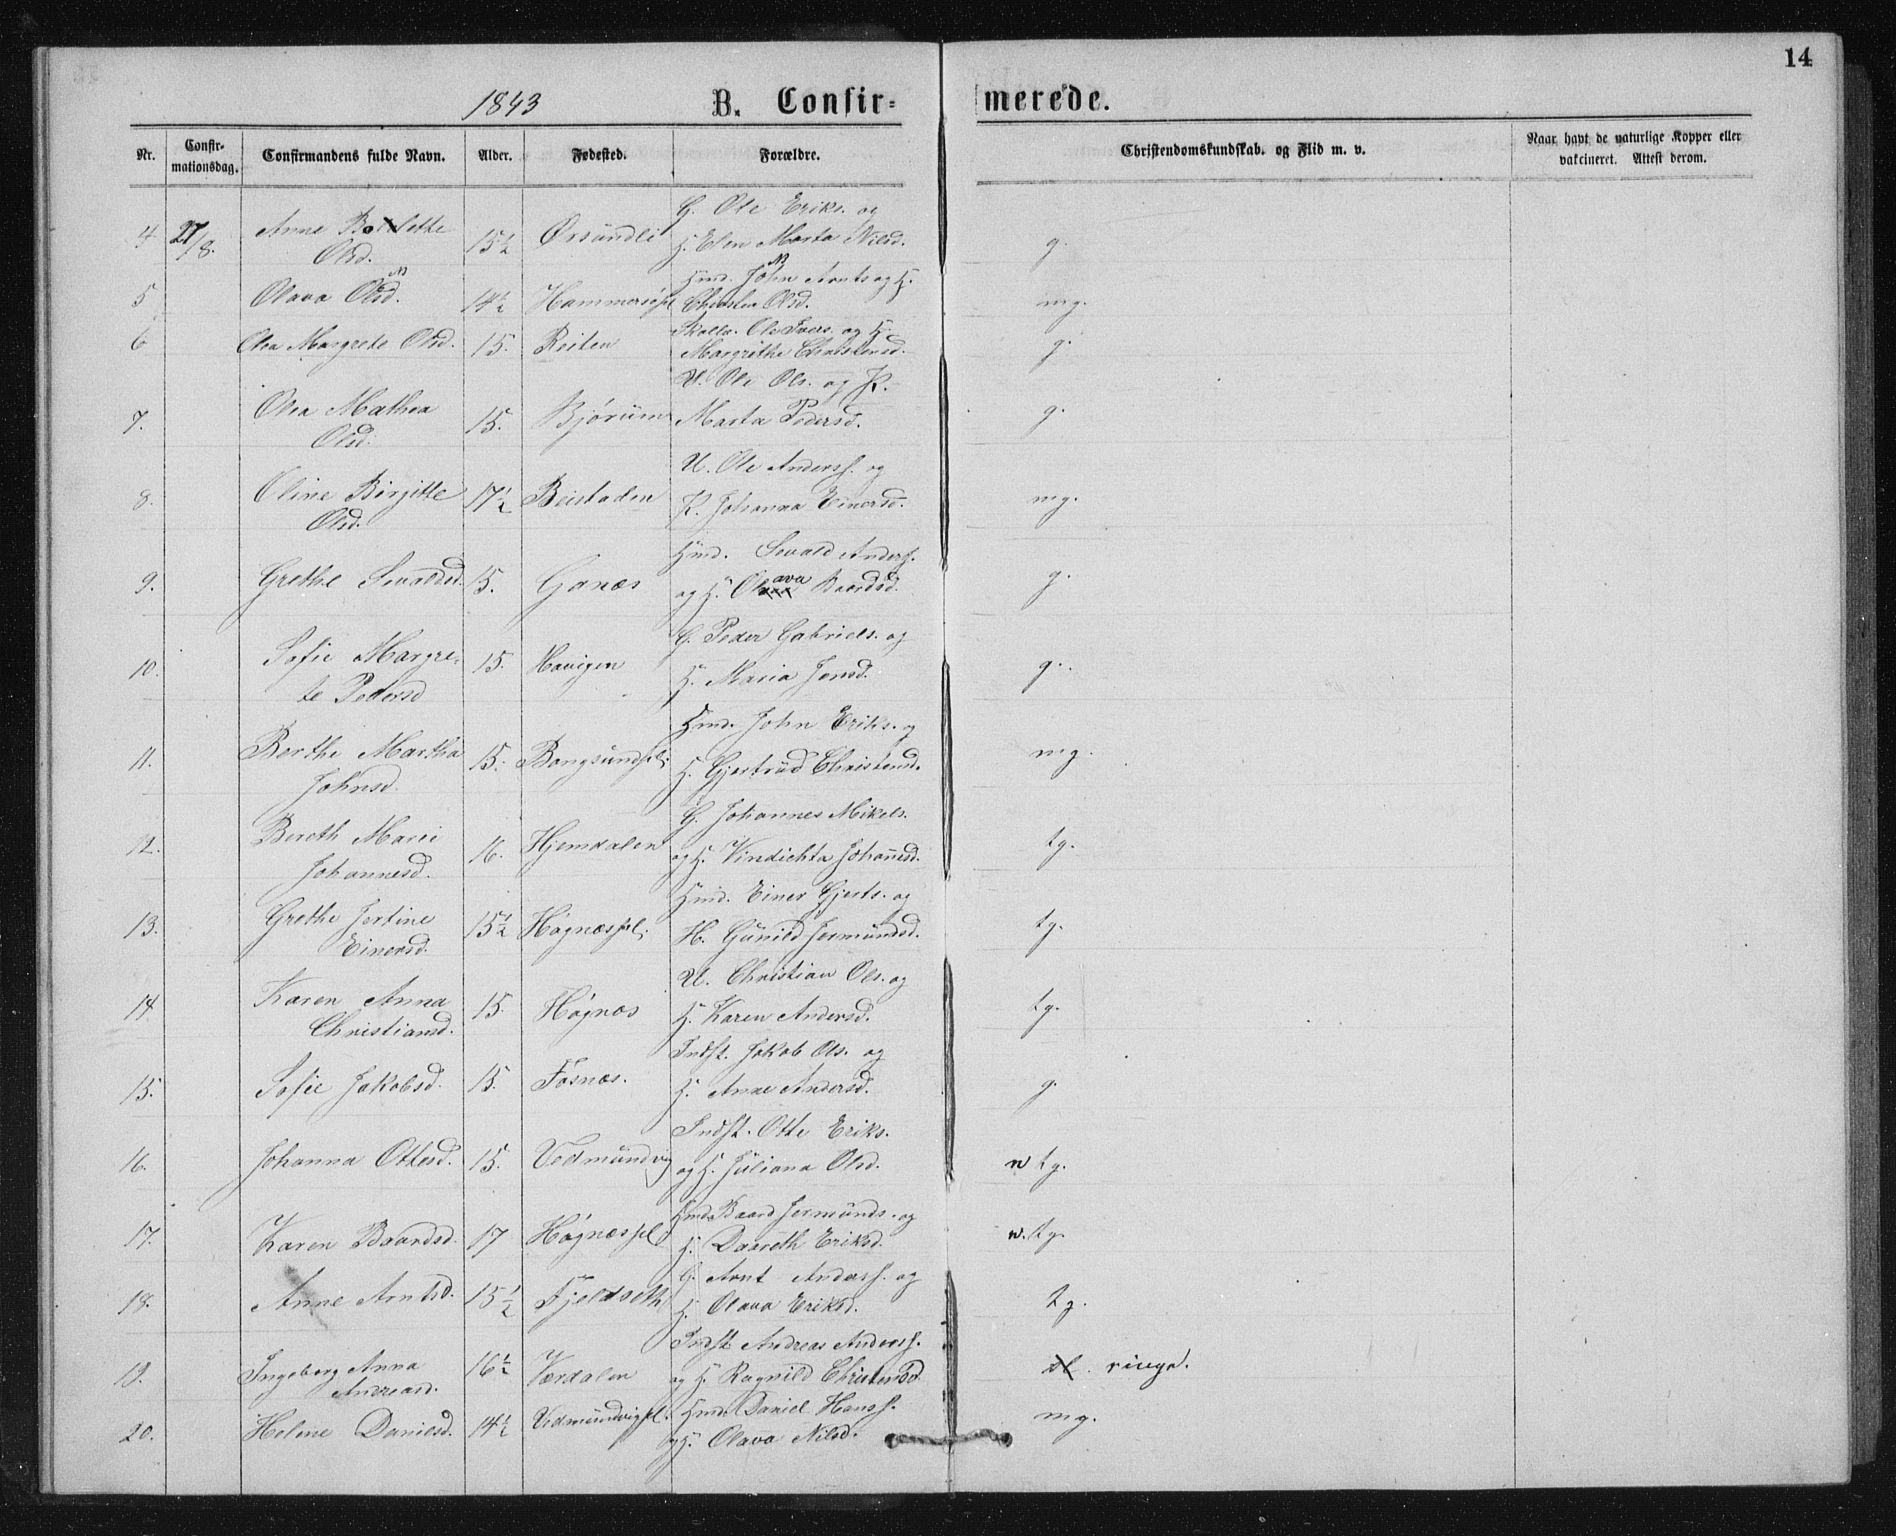 14
1843 B. Confir= merede.
Nr. Confir-mationsdag. Confirmandens fulde Navn. Alder. Fødested. Forældre. Christendomskundskab. og Flid m. v. Naar havt de naturlige Kopper eller vakcineret. Attest derom.
G. Ole Eriks. og
4. 27/8. Anne Bolette 15½ Örsundli H. Elen Marta Nilsd. g.
Olsd.
Hmd. John Arnts og H.
5 Olava Olsd. 14½ Christen Olsd. mg.
Ole Ivers. og H.
6 Olea Margrete Olsd. 15. Reiten Margrethe Christensd. g.
U. Ole Ols. og P.
7. Olea Mathea 15. Bjørum Marta Pedersd. g.
Olsd.
U. Ole Anderss. og
8. Oline Birgitte 17½ Beistaden P. Johanna Einersd. mg.
Olsd.
Hmd. Sevald Anderss.
9. Grethe Sevaldsd. 15. Ganæs og H. Olava Baardsd. g.
G. Peder Gabriels. og
10. Sofie Margre- 15. Havigen H. Maria Jensd. g.
te Pedersd
Hmd. John Eriks. og
11. Berthe Martha 15. Bangsundspl. H. Gjertrud Christensd. mg.
Johnsd.
G. Johannes Mikels.
12. Bereth Marie 16. Hjemdalen og H. Vindichta Johannesd. tg.
Johannesd.
Hmd. Einer Gjerts. og
13. Grethe Jertine 15½ Høgnæspl. H. Gunild Jermundsd. tg.
Einersd.
U. Christian Ols. og
14 Karen Anna 15. Høgnæs H. Karen Andersd. tg.
Christiansd.
Indst. Jakob Ols. og
15. Sofie Jakobsd. 15. Fosnæs. H. Anne Andersd. g.
Indst. Otte Eriks.
16. Johanna Ottesd. 15. Vedmundvig og H. Juliana Olsd. n tg.
Hmd. Baard Jermunds. og
17. Karen Baardsd. 17 Høgnæspl H. Daareth Eriksd. n. tg.
G. Arnt Anderss. og
18. Anne Arntsd. 15½ Fjeldseth H. Olava Eriksd. tg.
Indst Andreas Anderss.
19. Ingeborg Anna 16½ Værdalen og H. Ragnild Christensd ringe.
Andreasd.
20. Helene Danielsd. 14½ Vedmundvigpl. Hmd. Daniel Hanss. mg.
og H. Olava Nilsd.